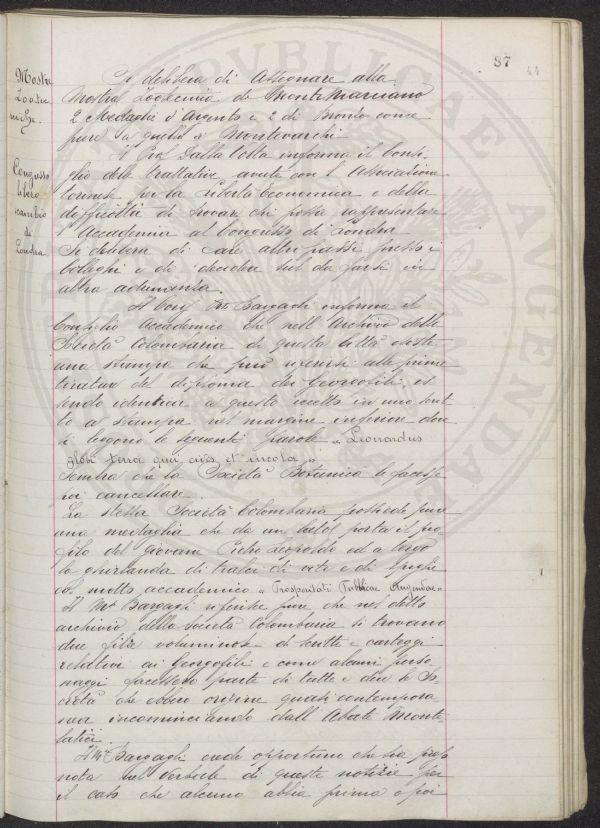 87
44
Mostre
Zootec
niche.
Si delibera di assegnare alla
Mostra Zootecnica di Montemarciano
2 Medaglie d'Argento e 2 di Bronzo come
pure a quella di Montevarchi.
Congresso
libero
scambio
di
Londra
Il Prof Dalla Volta informa il Consi-
glio delle trattative avute con l'Associazione
torinese per la Libertà Economica e della
difficoltà di trovare chi possa rappresentare
l'Accademia al Congresso di Londra
Si delibera di fare altri passi presso i
colleghi e di decidere sul da farsi in
altra adunanza.
Il Conf. Bargagli informa il
Consiglio Accademico che nell'Archivio della
Società Colombaria di questa città esiste
una stampa che può riferirsi alla prima
tiratura del diploma dei Georgofili, es
sendo identica a questo eccetto in uno scrit
to a stampa nel margine inferiore dove
si leggono le seguenti parole "Leonardus
globi terra quei civis et incola"
Sembra che la Società Botanica le facesse
poi cancellare.
La stessa Società Colombaria possiede pure
una medaglia che da un lato porta il pro
filo del giovane Pietro Leopoldo ed a tergo
la ghirlanda di tralci di vite e di spighe
col motto accademico "Prosperitati Publicae Augendae"
Il Mse Bargagli riferisce pure che nel detto
archivio della Società Colombaria si trovano
due filze voluminose di scritti e carteggi
relativi ai Georgofili e come alcuni perso
naggi facessero parte di tutte e due le So
cietà che ebbero origine quasi contempora
nea incominciando dall'Abate Monte
latici.
Il M. Bargagli crede opportuno che sia presa
nota nel Verbale di queste notizie per
il caso che alcuno abbia prima o poi